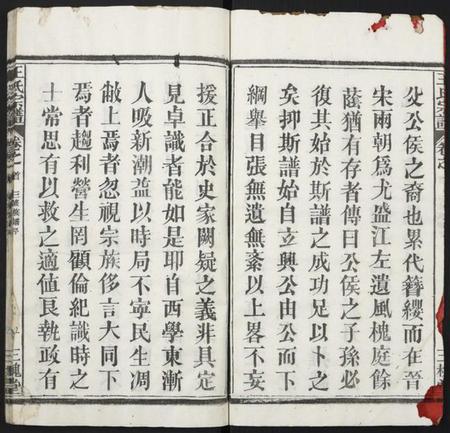 王氏宗譜
卷之首
父公侯之裔也累代簪纓而在晉
宋兩朝為尤盛江左遺風槐庭餘
蔭猶有存者傳曰公侯之子孫必
復其始於斯譜之成功足以卜之
矣抑斯譜始自立興公由公而下
綱舉目張無遺無紊以上畧不妄
援正合於史家闕疑之義非具定
見卓識者能如是耶自西學東漸
人吸新潮益以時局不寧民生凋
敝上焉者忽視宗族侈言大同下
焉者趨利營生罔顧倫紀識時之
士常思有以救之適值艮執政有
王氏宗譜
卷之首
三槐堂